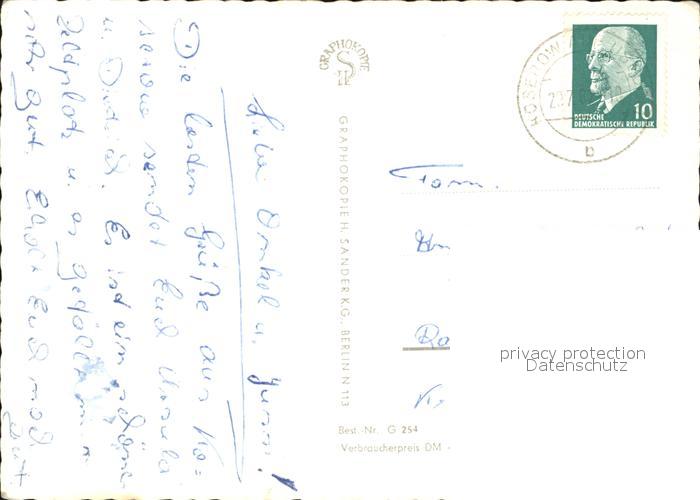 Lieber Onkel u. Jenni!
Die besten Grüße aus Ko=
serow sendet Euch Ursula
u. Dietrich. Es ist ein schöner
Zeltplatz u. es gefällt uns
sehr gut. Erholt Euch noch
gut
GRAPHOKOPIE
H S
GRAPHOKOPIE H. SANDER K.G., BERLIN N 113
Best.-Nr. G 254
Verbraucherpreis DM -
KOSEROW
b
10
DEUTSCHE
DEMOKRATISCHE REPUBLIK
Fam.
privacy protection
Datenschutz